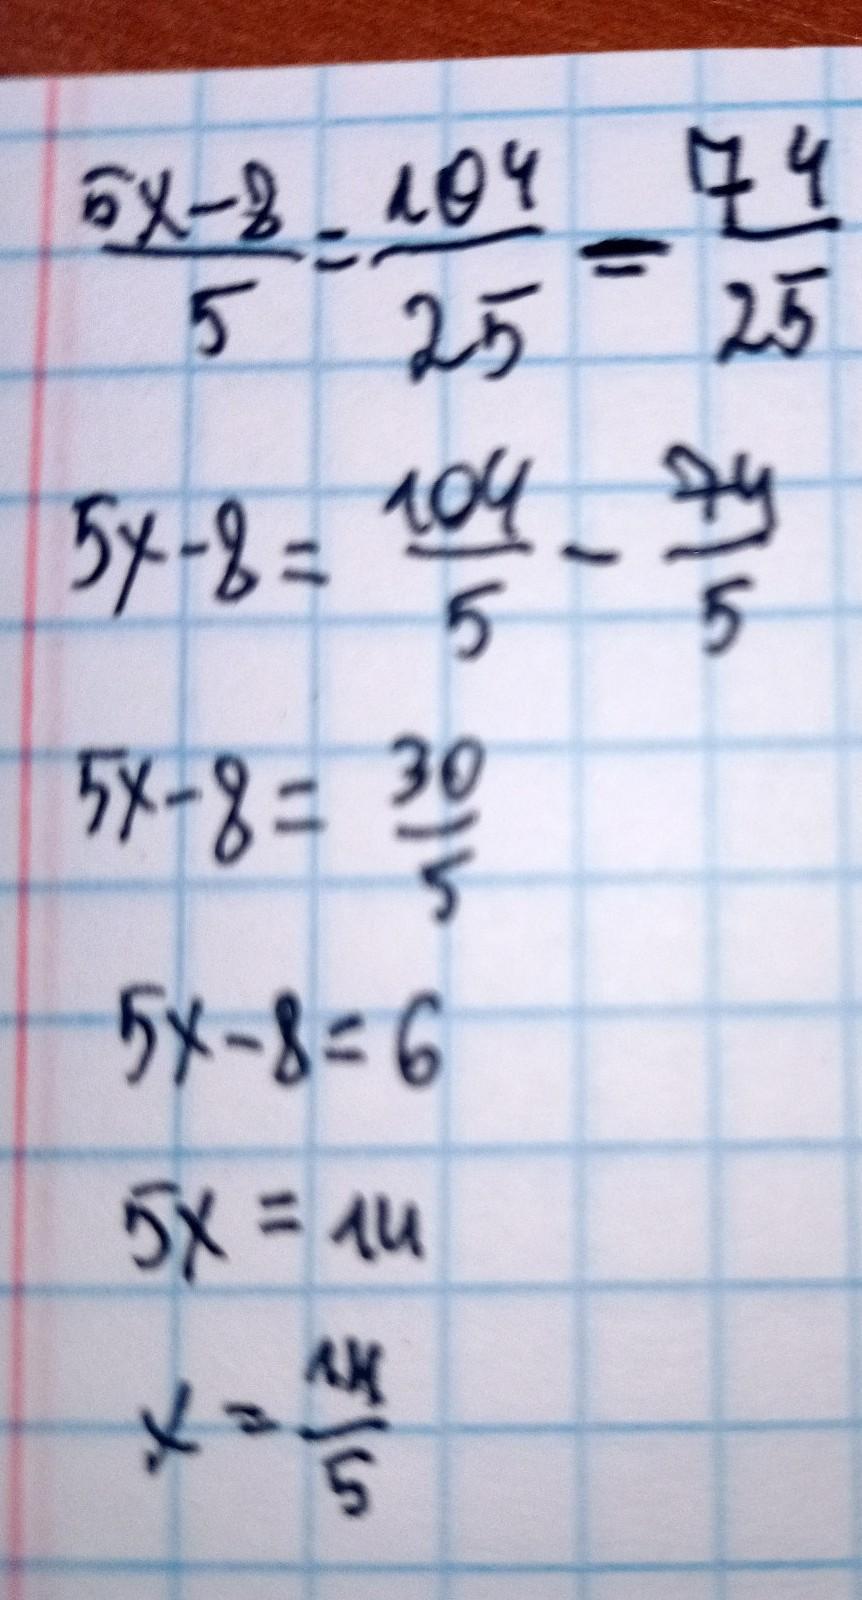 (5x-8)/5 = 104/25 - 74/25
5x-8 = 104/5 - 74/5
5x-8 = 30/5
5x-8 = 6
5x = 14
x = 14/5